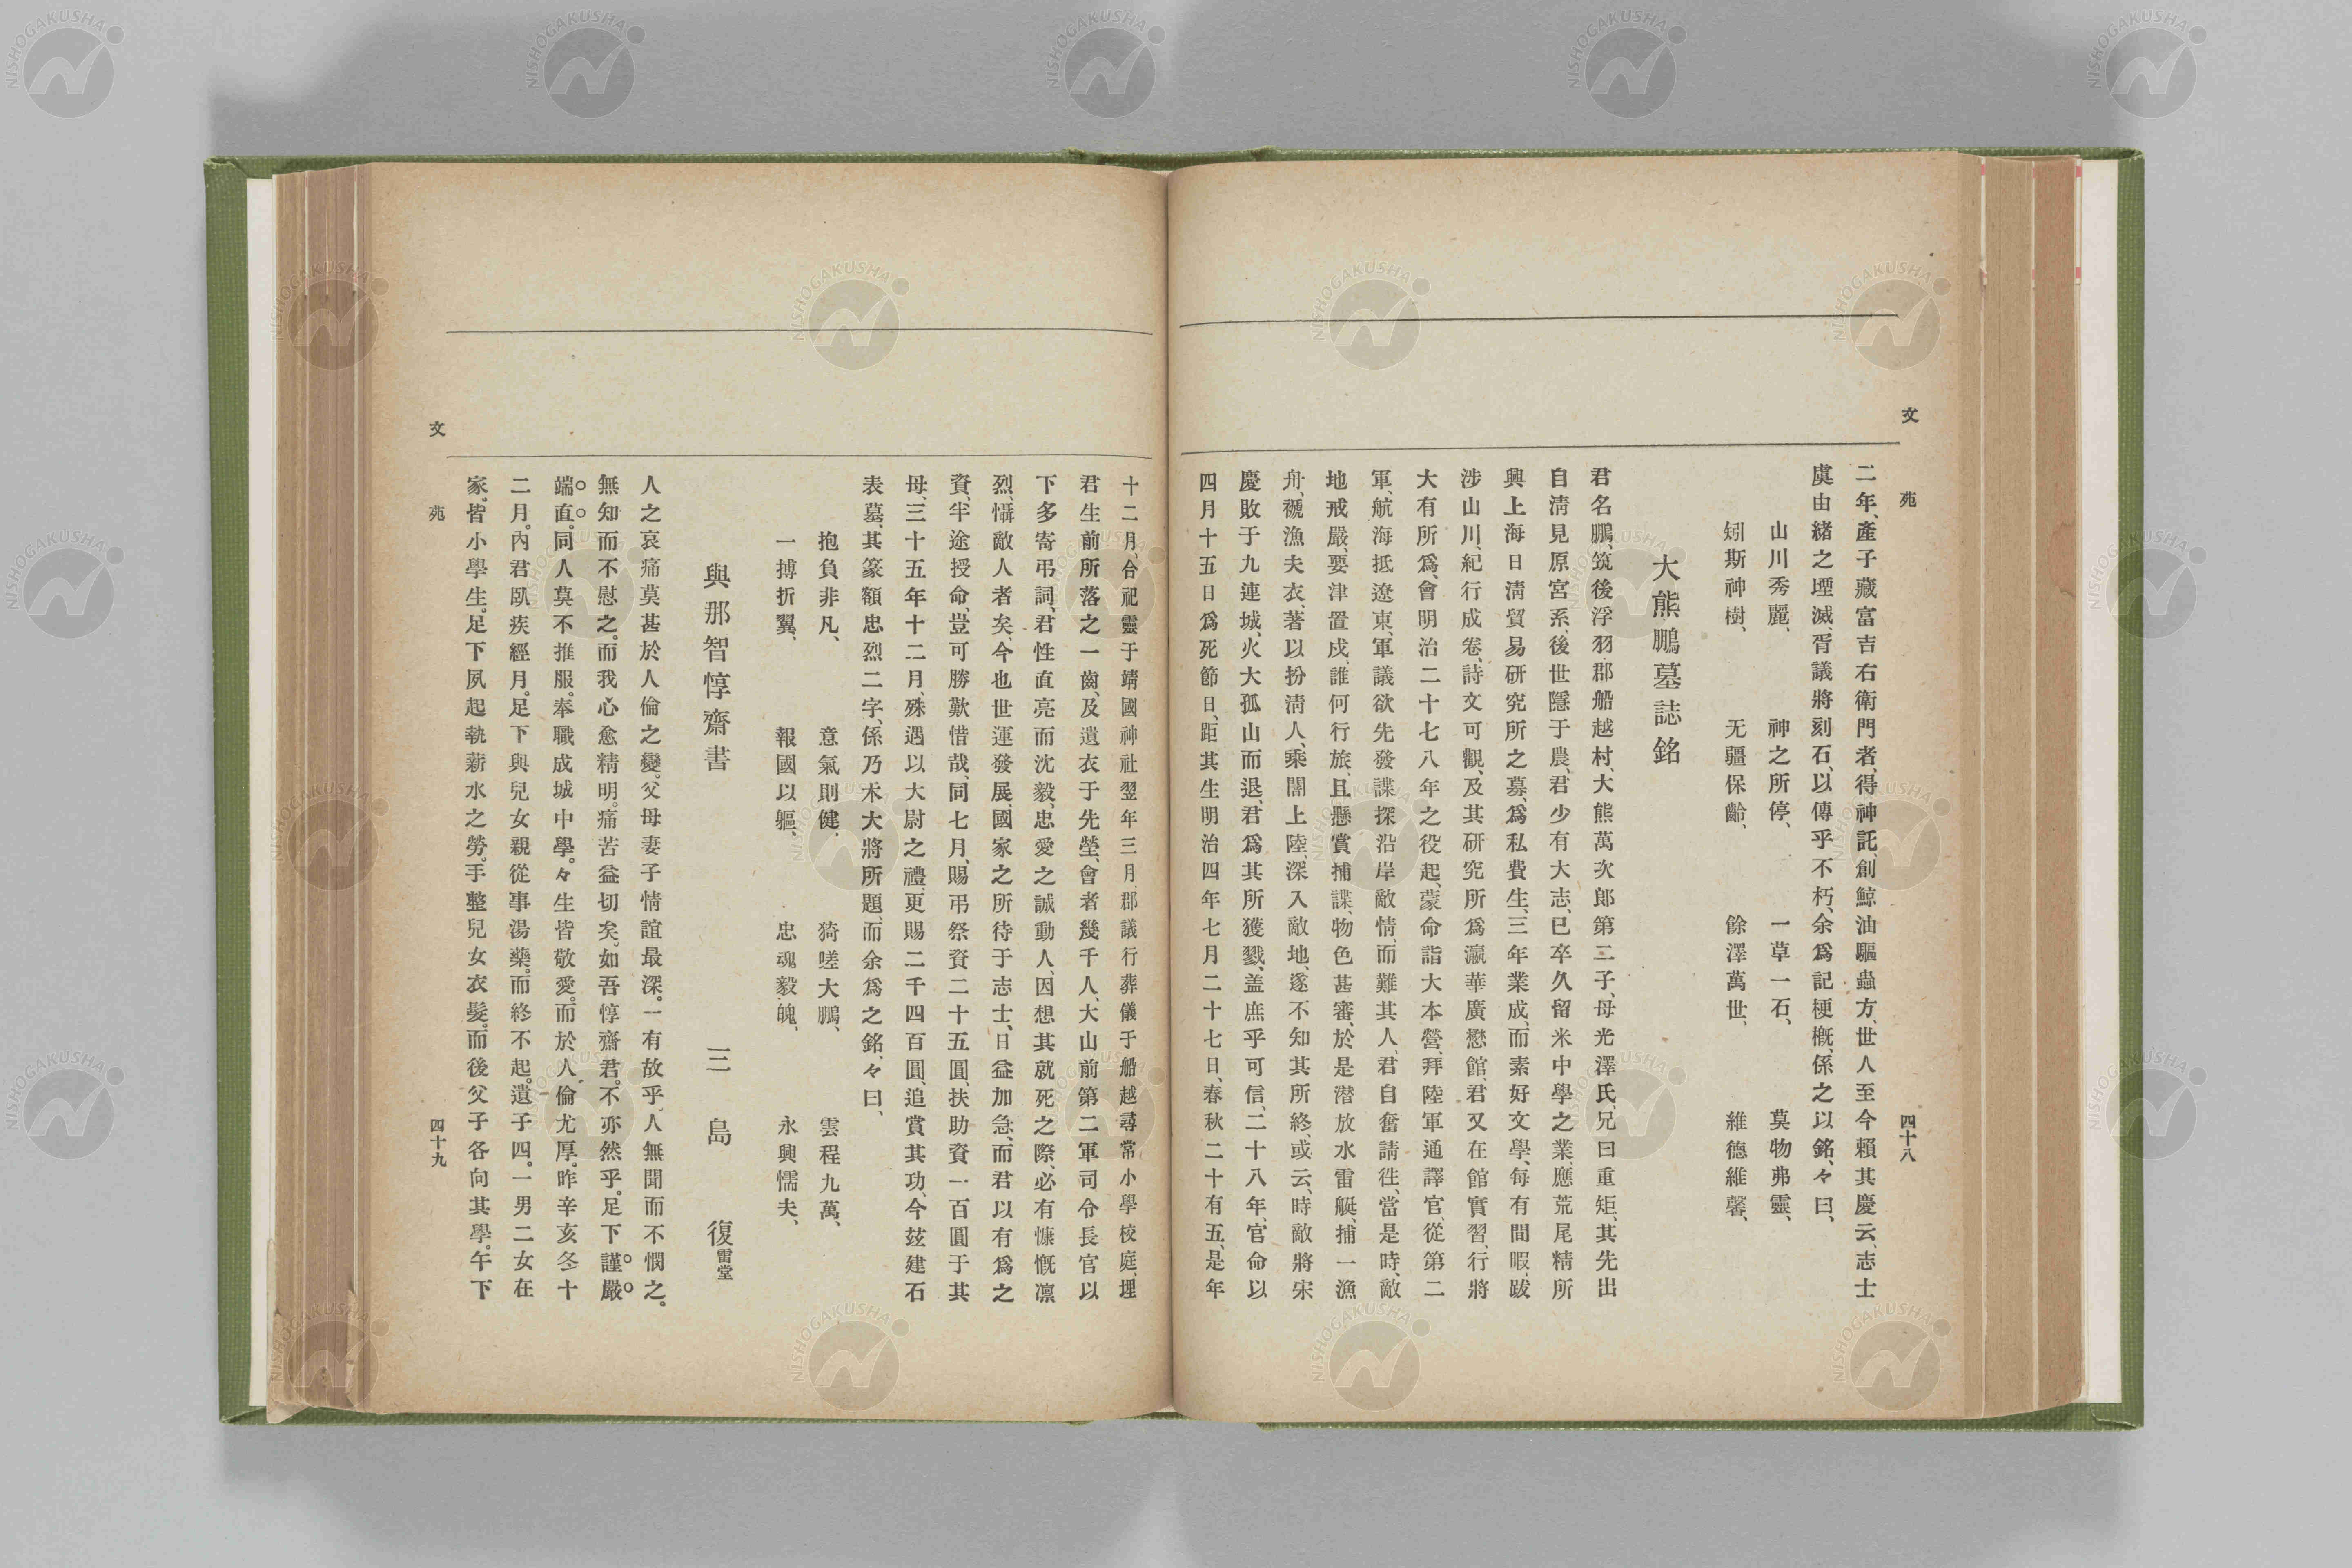 文苑
四十八
二年、產子藏富吉右衛門者、得神託、創鯨油驅蟲方、世人至今賴其慶云、志士
虞由緒之堙滅、胥議將刻石、以傳乎不朽、余爲記梗概、係之以銘、々曰、
山川秀麗、　神之所停、　一草一石、　莫物弗靈、
矧斯神樹、　无疆保齡、　餘澤萬世、　維德維馨、
大熊鵬墓誌銘
君名鵬、筑後浮羽郡船越村、大熊萬次郎第二子、母光澤氏、兄曰重矩、其先出
自淸見原宮系、後世隱于農、君少有大志、已卒久留米中學之業、應荒尾精所
興上海日淸貿易硏究所之募、爲私費生、三年業成、而素好文學、每有間暇、跋
涉山川、紀行成卷、詩文可觀、及其硏究所爲瀛華廣懋館、君又在館實習、行將
大有所爲、會明治二十七八年之役起、蒙命詣大本營、拜陸軍通譯官、從第二
軍、航海抵遼東、軍議欲先發諜探沿岸敵情、而難其人、君自奮請往、當是時、敵
地戒嚴、要津置戍、誰何行旅、且懸賞捕諜、物色甚審、於是潜放水雷艇、捕一漁
舟、褫漁夫衣、著以扮淸人、乘闇上陸、深入敵地、遂不知其所終、或云、時敵將宋
慶敗于九連城、火大孤山而退、君爲其所獲戮、盖庶乎可信、二十八年、官命以
四月十五日爲死節日、距其生明治四年七月二十七日、春秋二十有五、是年
十二月、合祀靈于靖國神社、翌年三月、郡議行葬儀于船越尋常小學校庭、埋
君生前所落之一齒、及遺衣于先塋、會者幾千人、大山前第二軍司令長官以
下多寄弔詞、君性直亮而沈毅、忠愛之誠動人、因想其就死之際、必有慷慨凛
烈、懾敵人者矣、今也世運發展、國家之所待于志士、日益加急、而君以有爲之
資、半途授命、豈可勝歎惜哉、同七月、賜弔祭資二十五圓、扶助資一百圓于其
母、三十五年十二月、殊遇以大尉之禮、更賜二千四百圓、追賞其功、今玆建石
表墓、其篆額忠烈二字、係乃木大將所題、而余爲之銘、々曰、
抱負非凡、　意氣則健、　猗嗟大鵬、　雲程九萬、
一搏折翼、　報國以軀、　忠魂毅魄、　永興懦夫、
與那智惇齋書　三島　復雷堂
人之哀痛莫甚於人倫之變。父母妻子情誼最深。一有故乎。人無聞而不憫之。
無知而不慰之。而我心愈精明。痛苦益切矣。如吾惇齋君。不亦然乎。足下謹嚴
端直。同人莫不推服。奉職成城中學。々生皆敬愛。而於人倫尤厚。昨辛亥冬十
二月。內君臥疾經月。足下與兒女親從事湯藥。而終不起。遺子四。一男二女在
家。皆小學生。足下夙起執薪水之勞。手整兒女衣髮。而後父子各向其學。午下
文苑
四十九